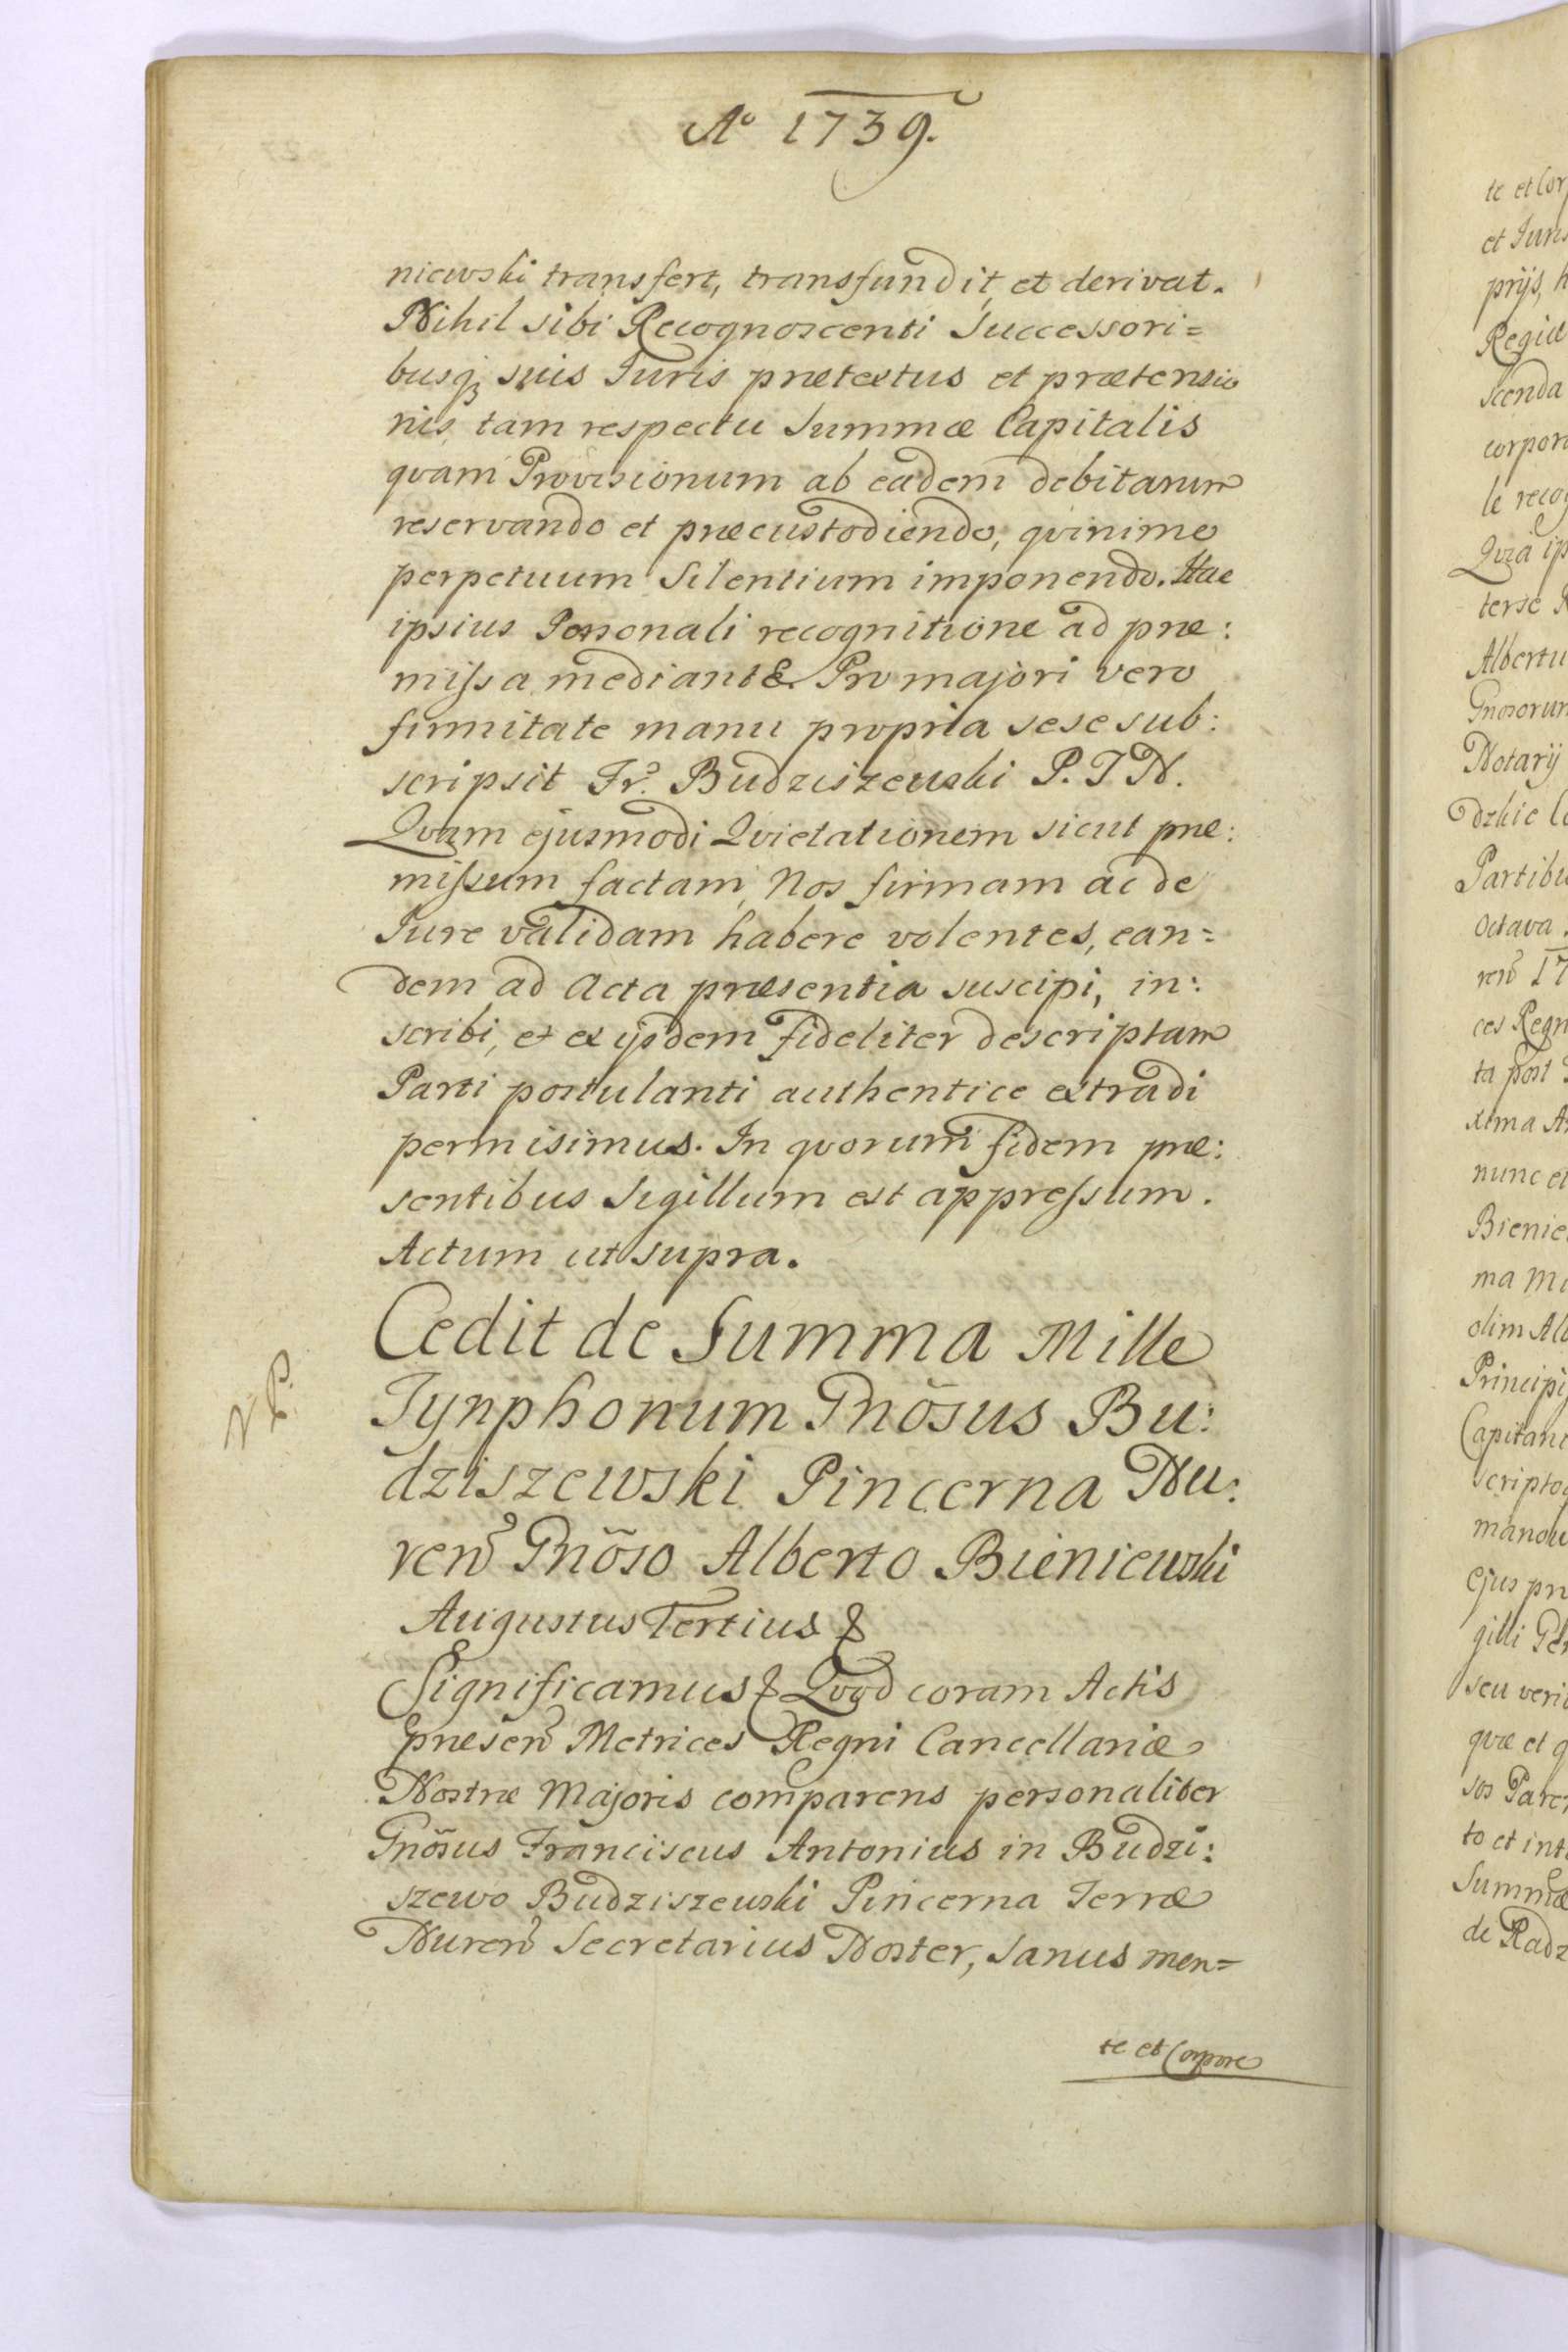 Aº 1739.
niewski transfert, transfundit, et derivat.
Nihil sibi Recognoscenti Successori=
busq; suis Juris prætextus et prætensio
nis, tam respectu Summæ Capitalis
qvam Provisionum ab eadem debitarum
reservando et præcustodiendo, qvinimo
perpetuum Silentium imponendo. Hac
ipsius Personali recognitione ad præ:
missa mediante. Pro majori vero
firmitate manu propria sese sub:
scripsit Fr. Budziszewski P. T N.
Qvam ejusmodi Qvietationem sicut præ:
missum factam, Nos firmam ac de
Jure validam habere volentes, ean=
dem ad Acta præsentia suscipi, in:
scribi, et ex ijsdem fideliter descriptam
Parti postulanti authentice extradi
permisimus. In qvorum fidem præ:
sentibus Sigillum est appressum.
Actum ut supra.
Cedit de Summa Mille
Tynphonum Gnõsus Bu:
dziszewski Pincerna Nu:
ren Gnõso Alberto Bieniewski
N P.
Augustus Tertius &
Significamus & Qvod coram Actis
præsen Metrices Regni Cancellariæ
Nostræ Majoris comparens personaliter
Gnõsus Franciscus Antonius in Budzi:
szewo Budziszewski Pincerna Terræ
Nuren Secretarius Noster, Sanus men=
te et Corpore
te et Cor
et Juris
prijs, h
Regiæ
scenda
corpor
le reco
Qvia ip
terse
Albertu
Gnosorum
Notarij
dzkie
Partibu
octava
ren 17
ces Regn
ta post
xima A
nunc et
Bienie
ma
olim Al
Principi
Capitane
scripto
manou
ejus pr
gilli
seu veri
qvæ et q
sos Paren
to et int
Summæ
de Radz